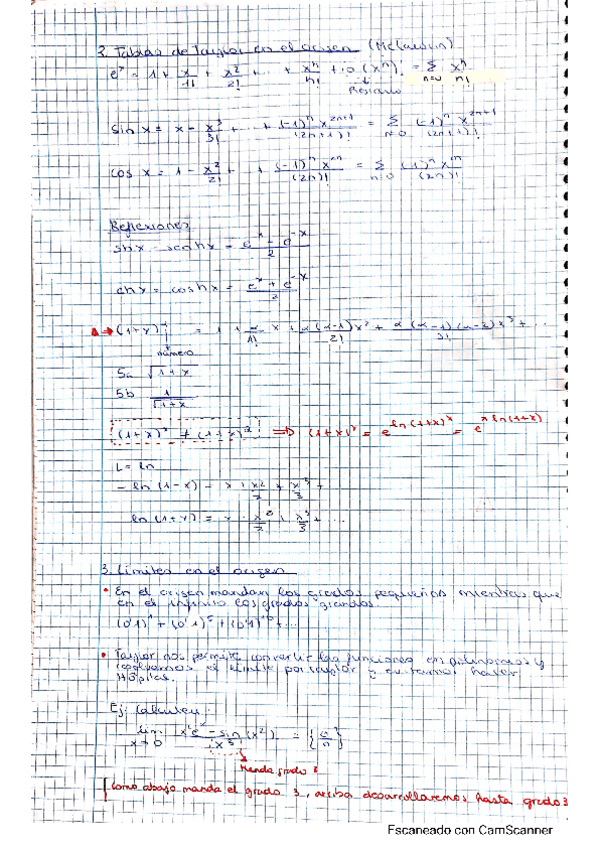 2. Tablas de Taylor en el origen (McLaurin)
e^x = 1 + x/1! + x²/2! + ... + x^n/n! + o(x^n) = Σ n=0 x^n/n!
Restano
sin x = x - x³/3! + ... + (-1)^n x^(2n+1)/(2n+1)! = Σ n=0 (-1)^n x^(2n+1)/(2n+1)!
cos x = 1 - x²/2! + ... + (-1)^n x^2n/(2n)! = Σ n=0 (-1)^n x^2n/(2n)!
Reflexiones
shx = senhx = e^x - e^-x / 2
chx = coshx = e^x + e^-x / 2
(1+x) = 1 + α/1! x + α(α-1)/2! x² + α(α-1)(α-2)/3! x³ + ...
número
5a √1+x
5b 1/√1+x
(1+x)^x ≠ (1+x)^2 => (1+x)^x = e^ln(1+x)^x = e^x ln(1+x)
L = ln
- ln(1-x) = x + x²/2 + x³/3 +
ln(1+x) = x - x²/2 + x³/3 + ...
3. Límites en el origen
• En el origen mandan los grados pequeños mientras que
en el infinito los grados grandes.
(0'1)^1 + (0'1)^5 + (0'1)^10 + ...
• Taylor nos permite convertir las funciones en polinomios y
resolvemos el límite por Taylor y evitamos hacer
Hôpital.
Ej: Calcular:
lim x→0 x²e^x - sin(x²) / x³ = {0/0}
Manda grado 3
Como abajo manda el grado 3, arriba desarrollaremos hasta grado 3
Escaneado con CamScanner